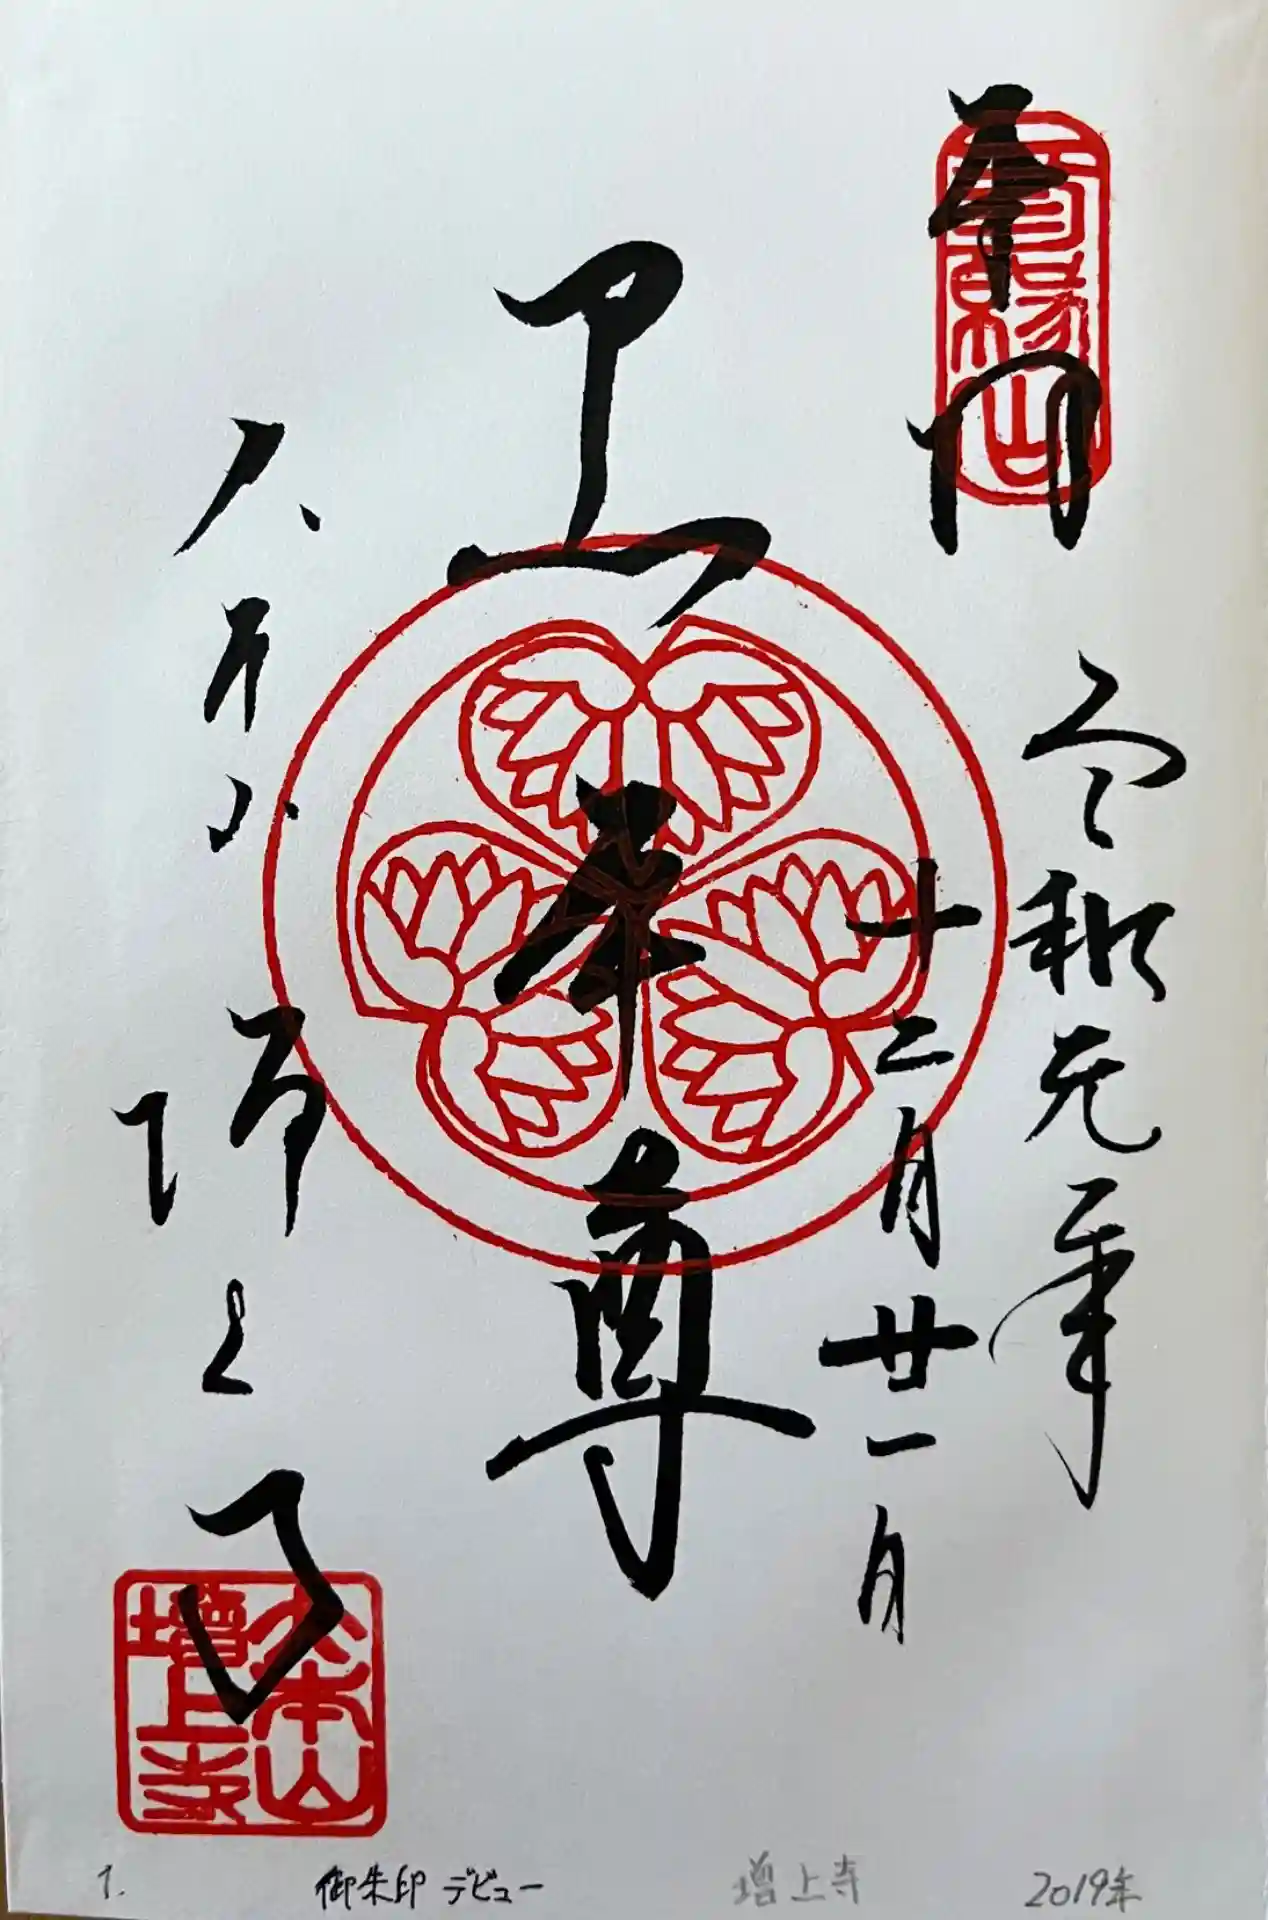 三縁山
令和元年
十二月廿一日
黒本尊
大本山増上寺
大本山
増上寺
1. 御朱印デビュー 増上寺 2019年